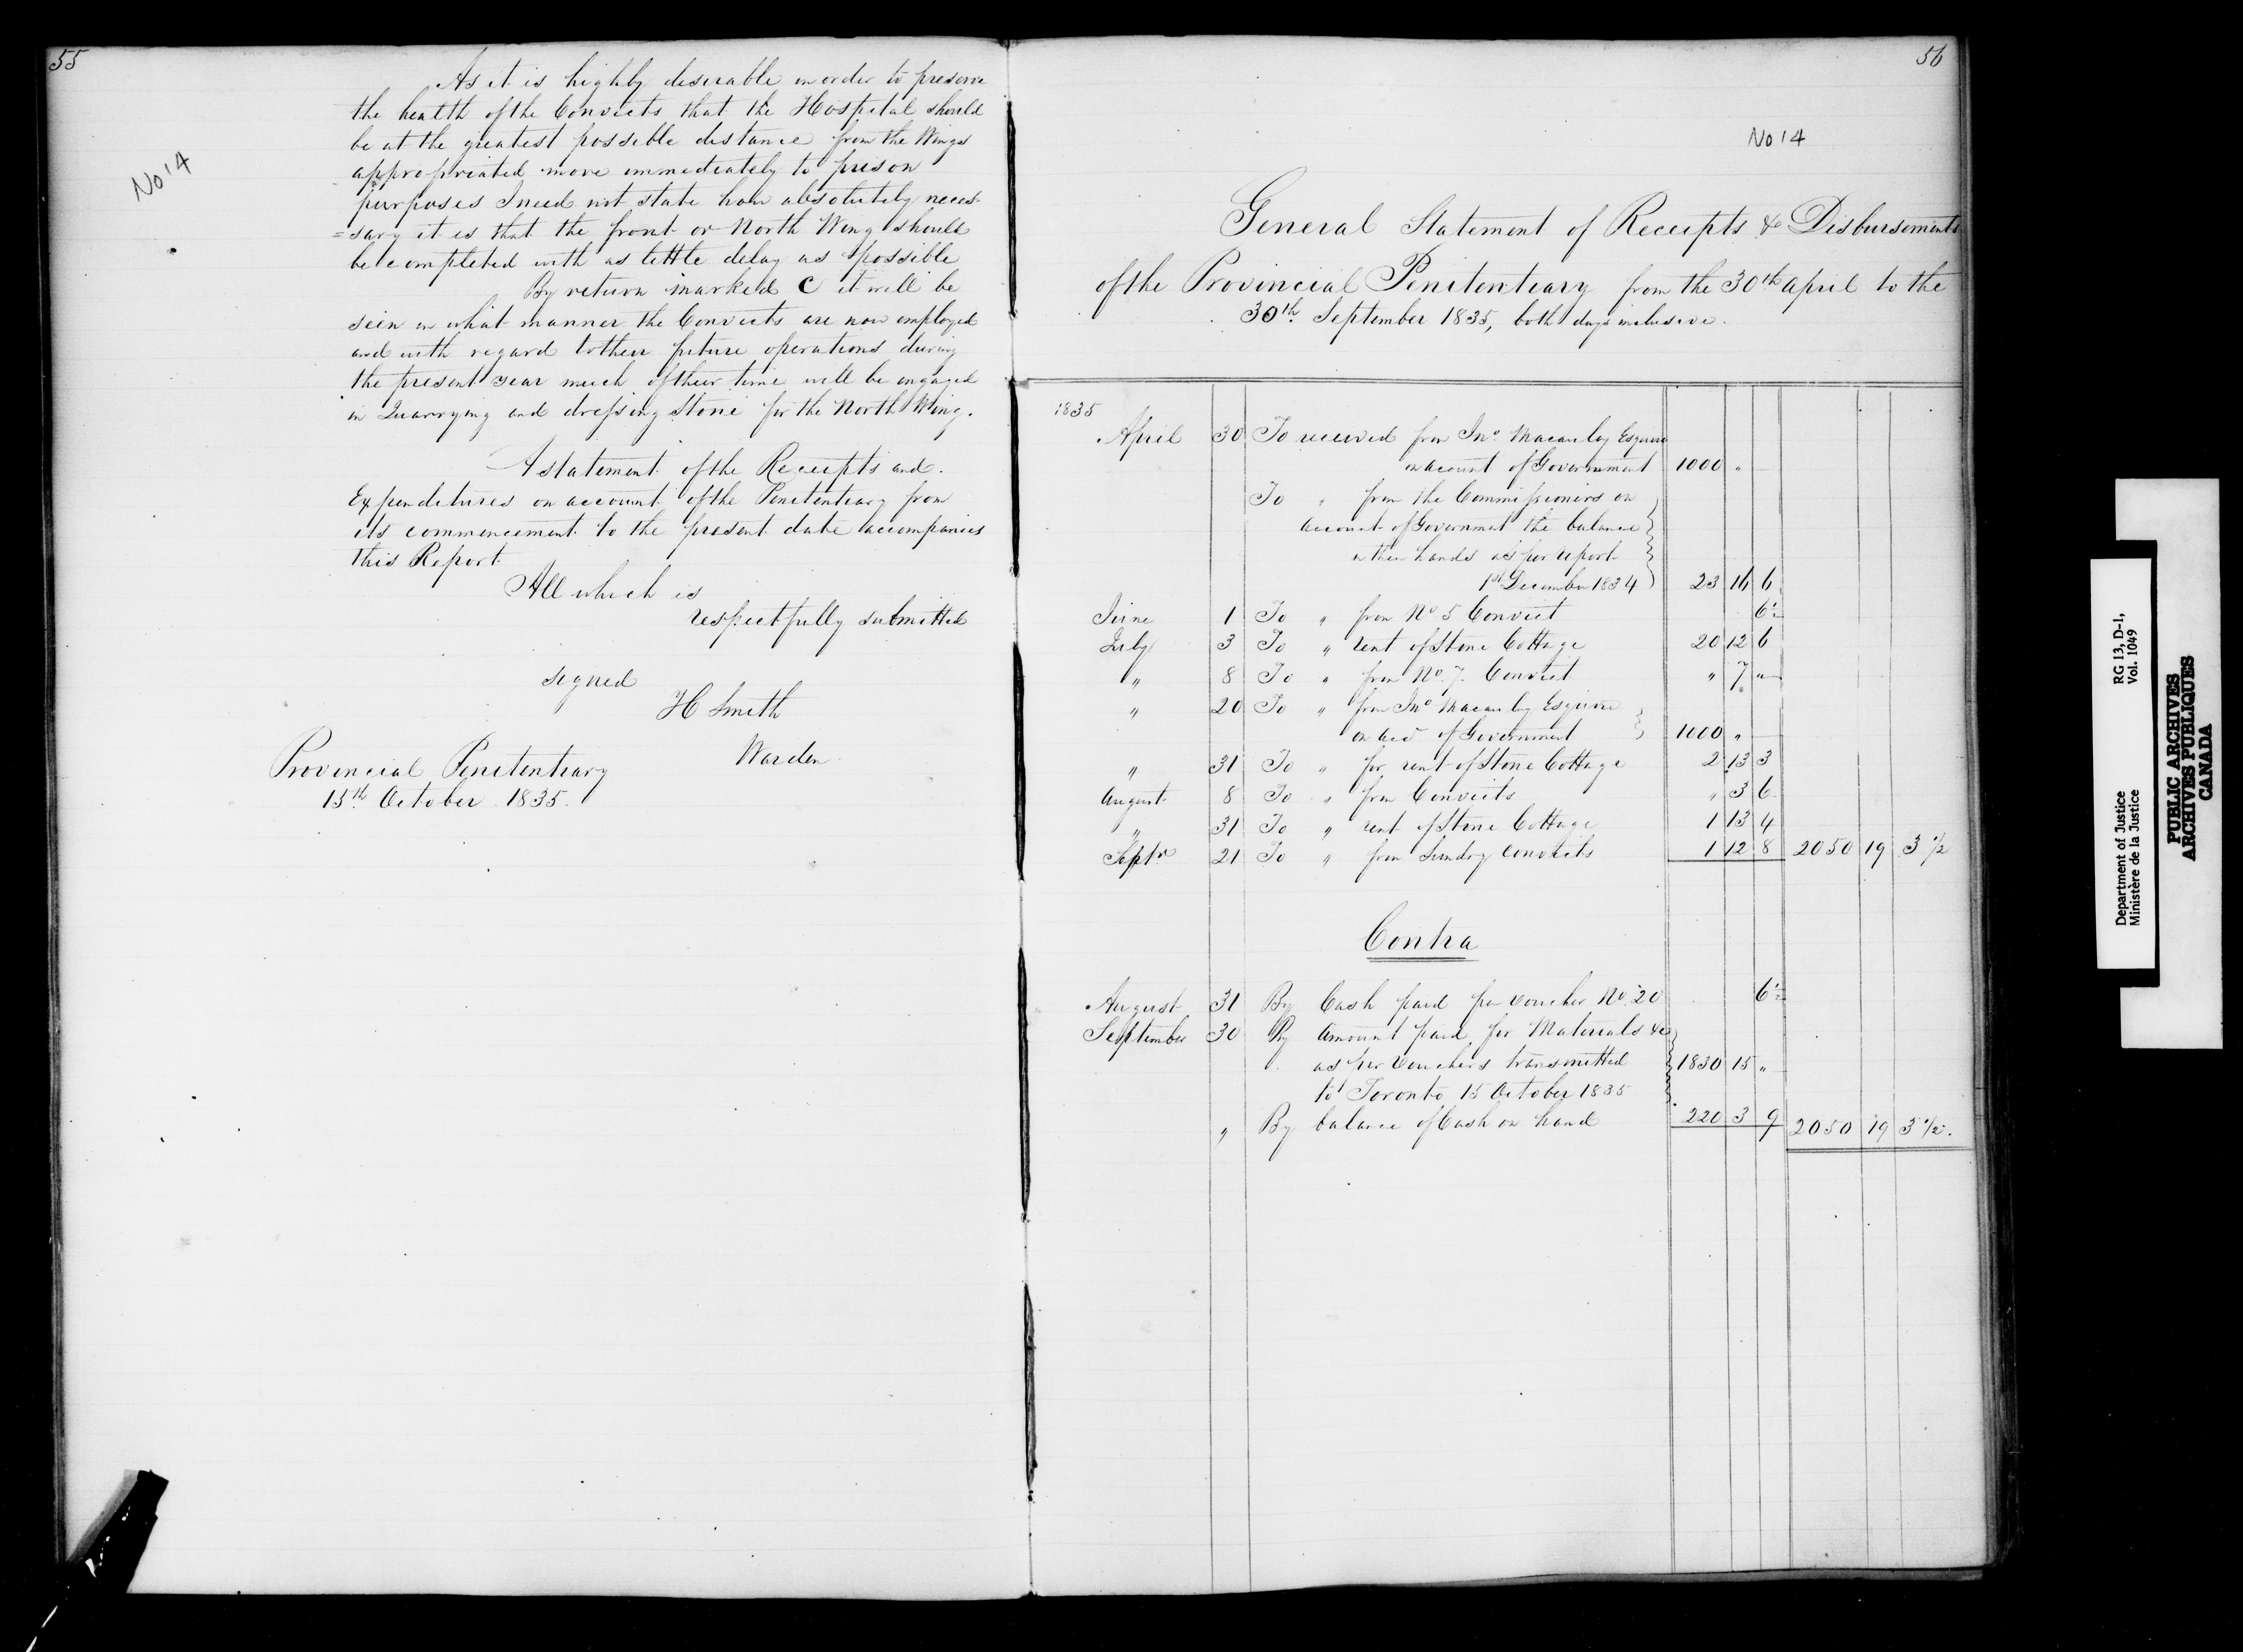 55
No 14
As it is highly desirable in order to preserve
the health of the Convicts that the Hospital should
be at the greatest possible distance from the Wings
appropriated more immediately to prison
purposes I need not state how absolutely neces-
=sary it is that the front or North Wing should
be completed with as little delay as possible
By return marked C it will be
seen in what manner the Convicts are now employed
and with regard to their future operations during
the present year much of their time will be engaged
in Quarrying and dressing Stone for the North Wing.
A statement of the Receipts and
Expenditures on account of the Penitentiary from
its commencement to the present date accompanies
this Report
All which is
respectfully submitted
signed
H Smith
Warden
Provincial Penitentiary
15th October 1835.
56
No 14
General Statement of Receipts & Disbursements
of the Provincial Penitentiary from the 30th April to the
30th September 1835, both days inclusive.
1835
April 30 To received from Jno Macaulay Esquire
on account of Government 1000 "
To " from the Commissioners on
account of Government the balance
in their hands as per report
1st December 1834 23 16 6
June 1 To " from No 5 Convict 6½
July 3 To " rent of Stone Cottage 20 12 6
" 8 To " from No. 7. Convict " 7 "
" 20 To " from Jno Macaulay Esquire
on acct of Government 1000 "
" 31 To " for rent of Stone Cottage 2 13 3
August 8 To " from Convicts " 3 6
" 31 To " rent of Stone Cottage 1 13 4
Septr 21 To " from Sundry Convicts 1 12 8 2050 19 3 ½
Contra
August 31 By Cash paid per Voucher No. 20 6½
September 30 By Amount paid for Materials &c
as per Vouchers transmitted 1830 15 "
to Toronto 15 October 1835
" By balance of Cash on hand 220 3 9 2050 19 3 ½.
Department of Justice
Ministère de la Justice
RG 13, D-1,
Vol. 1049
PUBLIC ARCHIVES
ARCHIVES PUBLIQUES
CANADA